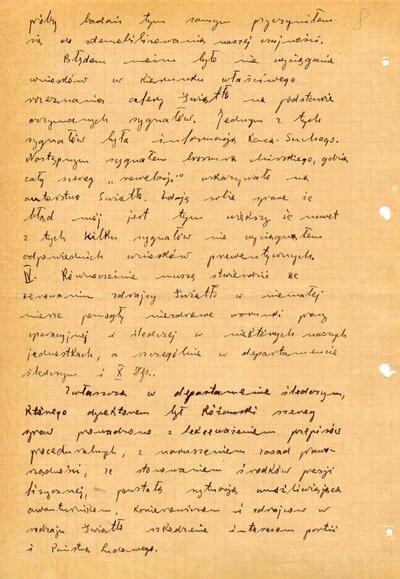 próby badań tym samym przyczyniłem
się do zdemobilizowania naszej czujności.
Błędem moim było nie wyciąganie
wniosków w kierunku właściwego
rozeznania afery Światło na podstawie
otrzymanych sygnałów. Jednym z tych
sygnałów była informacja Kaca-Suchego.
Następnym sygnałem broszura Mirskiego, gdzie
cały szereg „rewelacji" wskazywało na
autorstwo Światło. Zdaję sobie sprawę że
błąd mój jest tym większy że nawet
z tych kilku sygnałów nie wyciągnąłem
odpowiednich wniosków prewentycznych.
IV. Równocześnie muszę stwierdzić że
żerowaniu zdrajcy Światło w niemałej
mierze pomogły niezdrowe warunki pracy
operacyjnej i śledczej w niektórych naszych
jednostkach, a szczególnie w departamencie
śledczym i X Dep..
Zwłaszcza w departamencie śledczym,
którego dyrektorem był Różański szereg
spraw prowadzono z lekceważeniem przepisów
proceduralnych, z naruszeniem zasad prawo-
rządności, ze stosowaniem środków presji
fizycznej, powstała sytuacja umożliwiająca
awanturnikom, karierowiczom i zdrajcom w
rodzaju Światło szkodzenie interesom partii
i Państwa Ludowego.